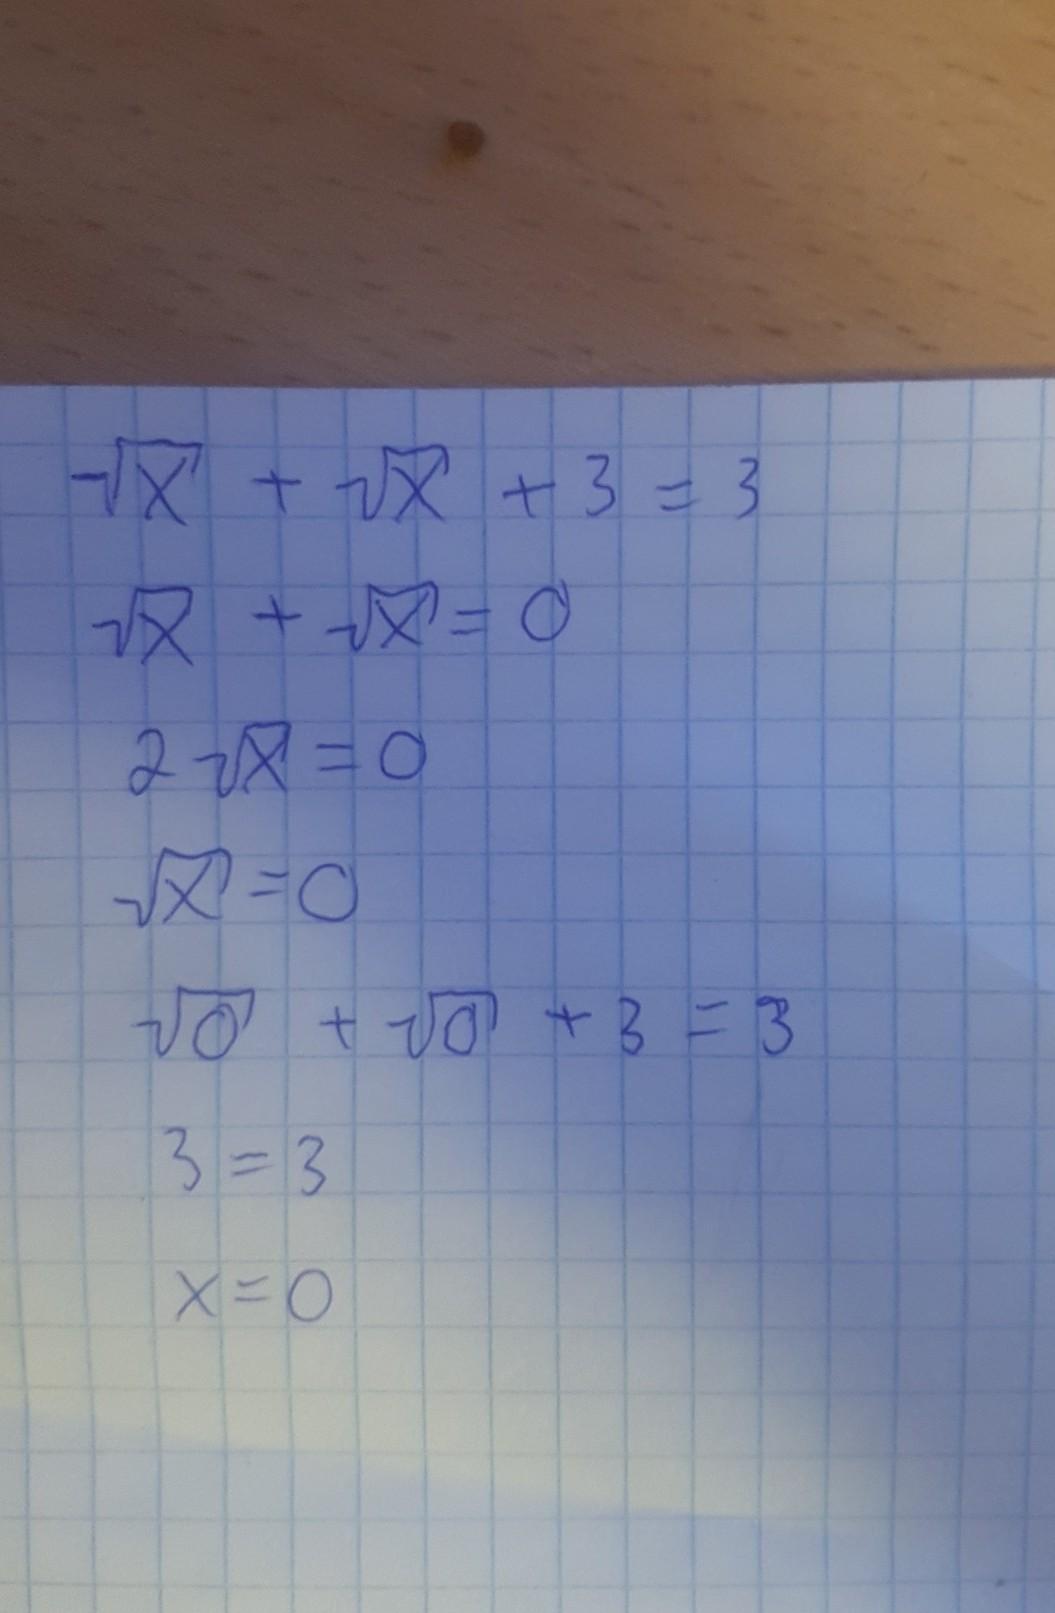 √x + √x + 3 = 3
√x + √x = 0
2√x = 0
√x = 0
√0 + √0 + 3 = 3
3 = 3
x = 0